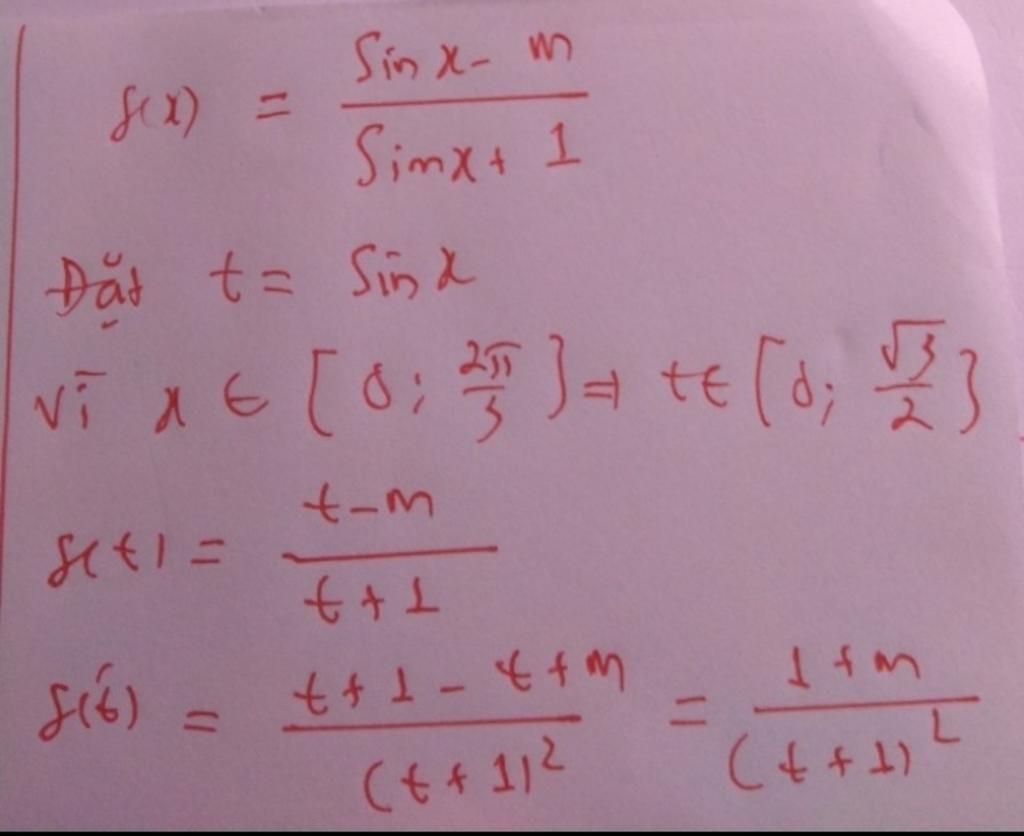 f(x) = (Sin x - m) / (Sin x + 1)
Đặt t = Sin x
vì x ∈ [0; 2π/3] ⇒ t ∈ [0; √3/2]
f(t) = (t - m) / (t + 1)
f'(t) = (t + 1 - t + m) / (t + 1)² = (1 + m) / (t + 1)²